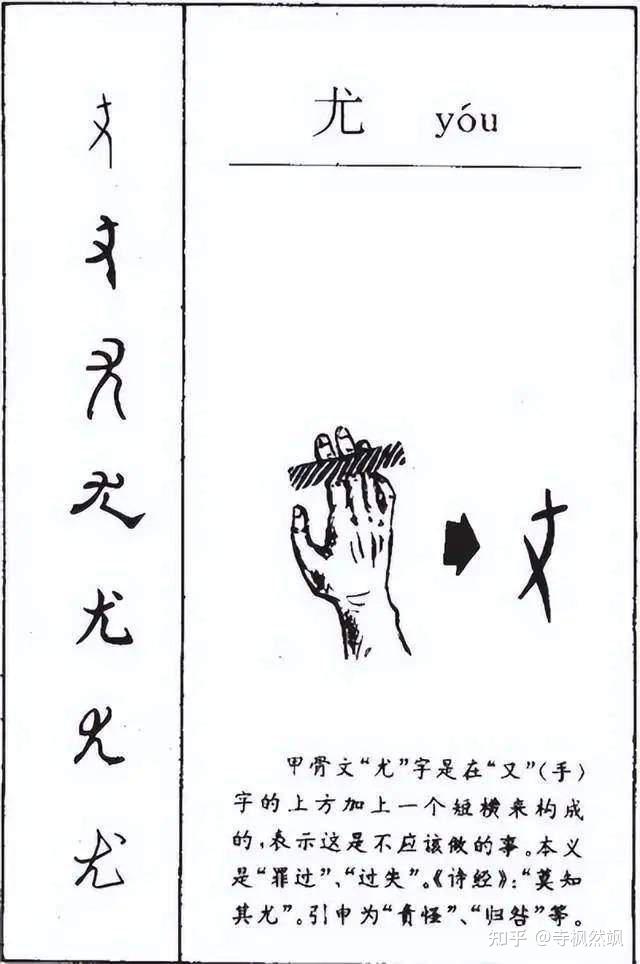 尤 yóu
甲骨文“尤”字是在“又”(手)
字的上方加上一个短横来构成
的,表示这是不应该做的事。本义
是“罪过”、“过失”。《诗经》:“莫知
其尤”。引申为“责怪”、“归咎”等。
知乎 @寺枫然飒
尤
尤
尤
尤
尤
尤
尤